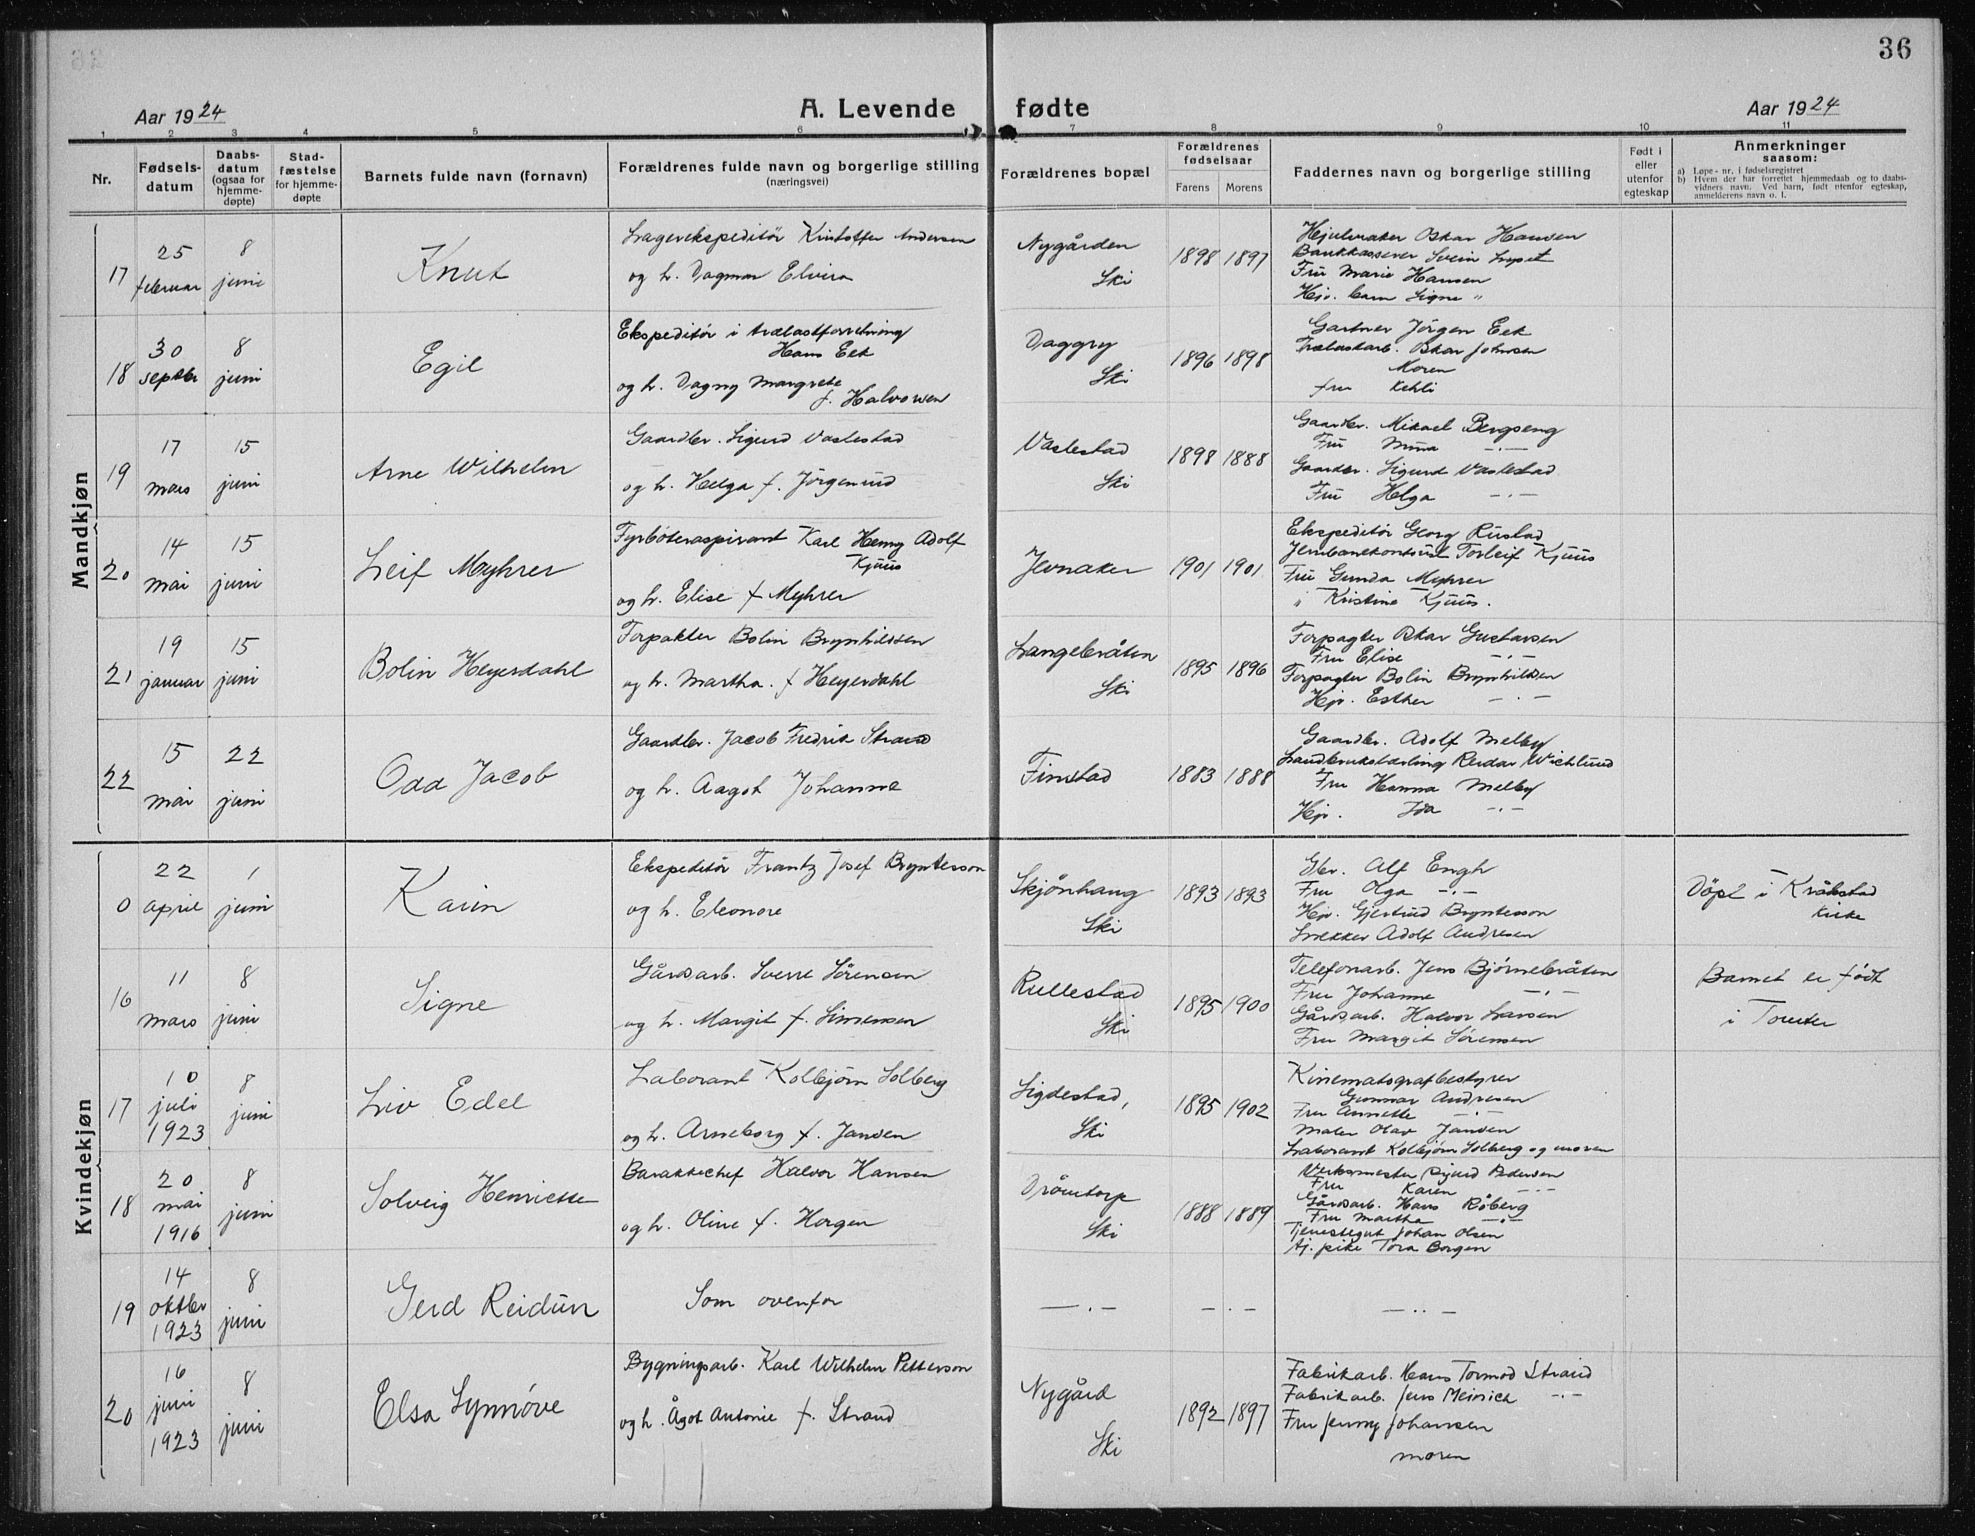 36
Aar 1924
A. Levende fødte
Aar 1924
1 2 3 4 5 6 7 8 9 10 11
Nr.
Fødsels-
datum
Daabs-
datum
(ogsaa for
hjemme-
døpte)
Stad-
fæstelse
for hjemme-
døpte
Barnets fulde navn (fornavn)
Forældrenes fulde navn og borgerlige stilling
(næringsvei)
Forældrenes bopæl
Forældrenes
fødselsaar
Farens Morens
Faddernes navn og borgerlige stilling
Født i
eller
utenfor
egteskap
Anmerkninger
saasom:
a) Løpe-nr. i fødselsregistret
b) Hvem der har forrettet hjemmedaab og to daabs-
vidners navn. Ved barn, født utenfor egteskap,
anmelderens navn o. l.
Mandkjøn
17
25
februar
8
juni
Knut
Lagerekspeditör Kristoffer Andersen
og h. Dagmar Elvira
Nygården
Ski
1898 1897
Hjulmaker Oskar Hansen
Bankkasserer Svein
Fru Marie Hansen
Hjv. barn Signe "
18
30
septbr
8
juni
Egil
Ekspeditör i trælastforretning
Hans Eek
og h. Dagny Margrete
f. Halvorsen
Daggry
Ski
1896 1898
Gartner Jörgen Eek
Trælastarb. Oskar Johnsen
Moren
fru Kehli
19
17
mars
15
juni
Arne Wilhelm
Gaardbr. Sigurd Vaslestad
og h. Helga f. Jörgensrud
Vaslestad
Ski
1898 1888
Gaardbr. Mikael Bergseng
Fru Mina —.—
Gaardbr. Sigurd Vaslestad
Fru Helga —.—
20
14
mai
15
juni
Leif Myhrer
Fyrböteraspirant Karl Henry Adolf
Kjuus
og h. Elise f Myhrer
Jevnaker
1901 1901
Ekspeditör Georg Rustad
Jernbanekontorist Torleif Kjuus
Fru Gunda Myhrer
" Kristine Kjuus.
21
19
januar
15
juni
Bolin Heyerdahl
Forpakter Bolin Brynhildsen
og h. Martha. f Heyerdahl
Langebråten
Ski
1895 1896
Forpagter Oskar Gustavsen
Fru Elise —.—
Forpagter Bolin Brynhildsen
Hjv. Esther —.—
22
15
mai
22
juni
Odd Jacob
Gaardbr. Jacob Fredrik Strand
og h. Aagot Johanne
Finstad
1883 1888
Gaardbr. Adolf Melby
Landbrukslærling Reidar Wichlund
Fru Hanna Melby
Hjv. Ida —.—
Kvindekjøn
0
22
april
1
juni
Karin
Ekspeditör Frantz Josef Bryntesson
og h. Eleonore
Skjönhaug
Ski
1893 1893
Gbr. Alf Engh
Fru Olga —.—
Hjv. Gjertrud Bryntesson
Snekker Adolf Andresen
Döpt i Kråkstad
kirke
16
11
mars
8
juni
Signe
Gårdsarb. Sverre Sörensen
og h. Margit f. Simensen
Rullestad
Ski
1895 1900
Telefonarb. Jens Björnebråten
Fru Johanne —.—
Gårdsarb. Halvor Larsen
Fru Margit Sörensen
Barnet er födt
i Tomter
17
10
juli
1923
8
juni
Liv Edel
Laborant Kolbjörn Solberg
og h. Arneborg f. Jansen
Sigdestad,
Ski
1895 1902
Kinematografbestyrer
Gunnar Andresen
Fru Annette —.—
Maler Olav Jansen
Laborant Kolbjörn Solberg og moren
18
20
mai
1916
8
juni
Solveig Henriette
Barakkechef Halvor Hansen
og h. Oline f. Horgen
Drömtorp
Ski
1888 1889
Verksmester Sigurd Pedersen
Fru Karen —.—
Gårdsarb. Hans Råberg
Fru Martha —.—
Tjenestegut Johan Olsen
Tj. pike Tora Borgen
19
14
oktbr
1923
8
juni
Gerd Reidun
Som ovenfor
—.— —.— —..—
20
16
juni
1923
8
juni
Elsa Synnöve
Bygningsarb. Karl Wilhelm Petterson
og h. Ågot Antonie f. Strand
Nygård
Ski
1892 1897
Fabrikarb. Hans Tormod Strand
Fabrikarb. Jens Meinich —.—
Fru Jenny Johansen
moren